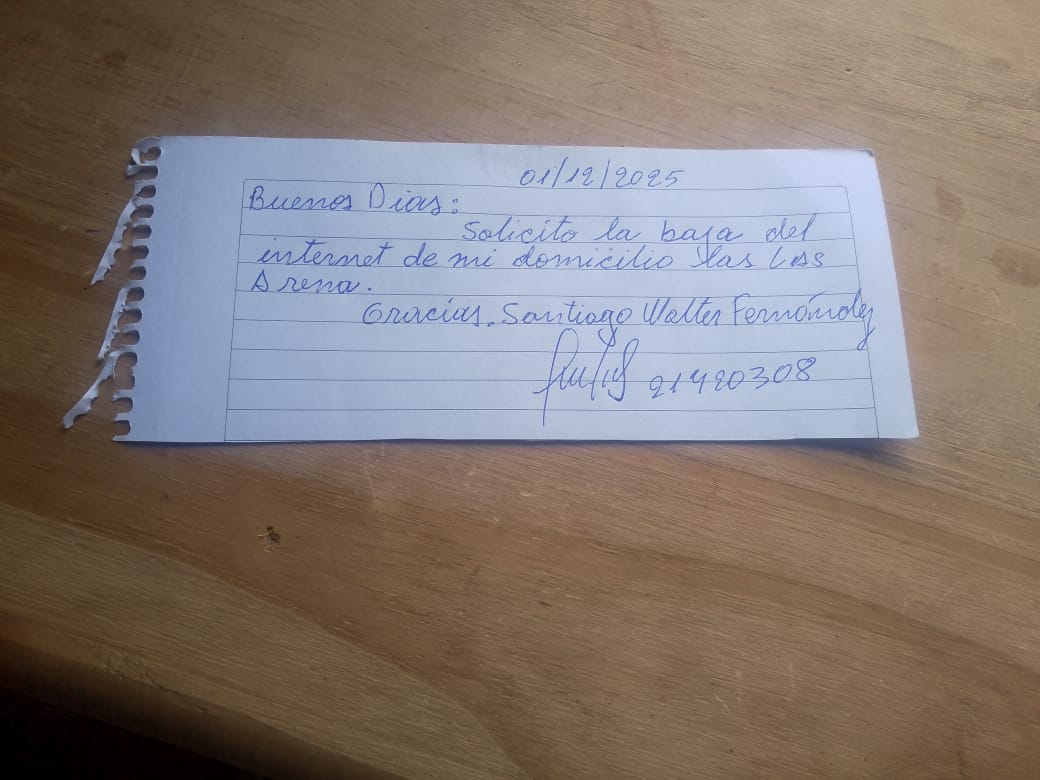 01/12/2025
Buenos Dias:
Solicito la baja del
internet de mi domicilio las LAS
Arena.
Gracias. Santiago Walter Fernández
21420308